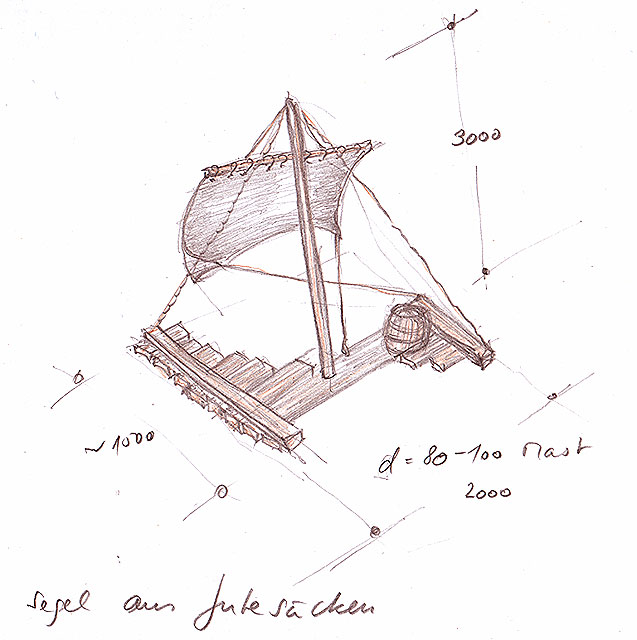 3000
~ 1000
d = 80 - 100 Mast
2000
Segel aus Jutesäcken